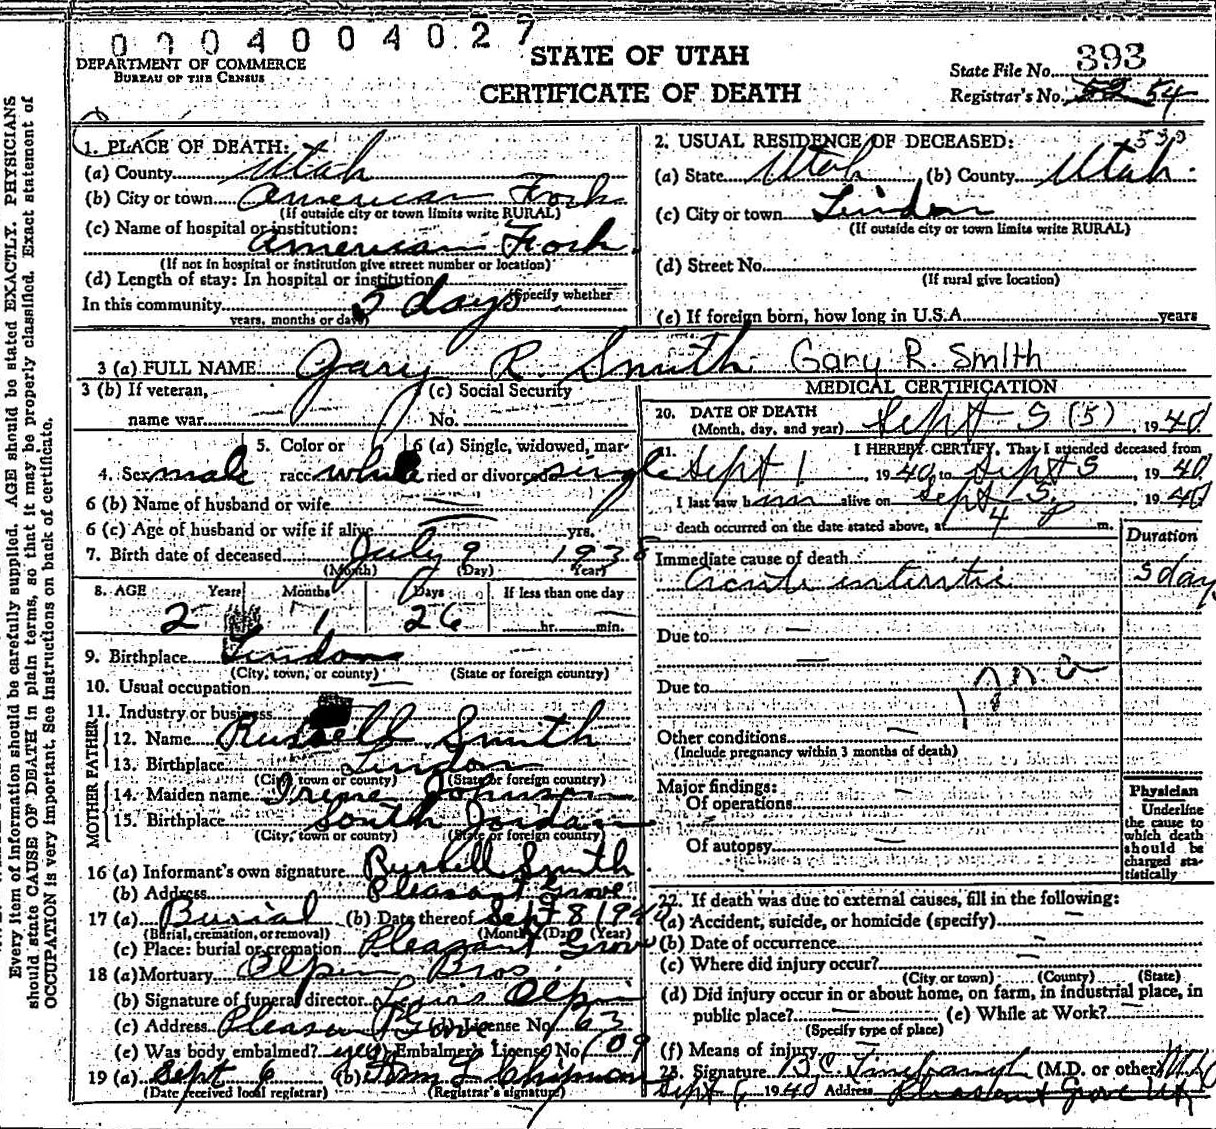 0 0 0 4 0 0 4 0 2 7
DEPARTMENT OF COMMERCE
BUREAU OF THE CENSUS
STATE OF UTAH
CERTIFICATE OF DEATH
State File No. 393
Registrar's No. 54
Every item of information should be carefully supplied. AGE should be stated EXACTLY. PHYSICIANS
should state CAUSE OF DEATH in plain terms, so that it may be properly classified. Exact statement of
OCCUPATION is very important. See instructions on back of certificate.
1. PLACE OF DEATH:
(a) County Utah
(b) City or town American Fork
(If outside city or town limits write RURAL)
(c) Name of hospital or institution:
American Fork
(If not in hospital or institution give street number or location)
(d) Length of stay: In hospital or institution
(Specify whether
In this community 5 days
years, months or days)
2. USUAL RESIDENCE OF DECEASED: 530
(a) State Utah (b) County Utah
(c) City or town Lindon
(If outside city or town limits write RURAL)
(d) Street No.
(If rural give location)
(e) If foreign born, how long in U.S.A. years
3 (a) FULL NAME Gary R. Smith Gary R. Smith
3 (b) If veteran,
name war
(c) Social Security
No.
4. Sex male
5. Color or
race white
6 (a) Single, widowed, mar-
ried or divorced single
6 (b) Name of husband or wife
6 (c) Age of husband or wife if alive yrs.
7. Birth date of deceased July 9 1938
(Month) (Day) (Year)
8. AGE Years Months Days If less than one day
2 1 26 hr. min.
9. Birthplace Lindon
(City, town, or county) (State or foreign country)
10. Usual occupation
11. Industry or business
FATHER
12. Name Russell Smith
13. Birthplace Lindon
(City, town or county) (State or foreign country)
MOTHER
14. Maiden name Irene Johnson
15. Birthplace South Jordan
(City, town or county) (State or foreign country)
16 (a) Informant's own signature Russell Smith
(b) Address Pleasant Grove
17 (a) Burial (b) Date thereof Sept 8 1940
(Burial, cremation, or removal) (Month) (Day) (Year)
(c) Place: burial or cremation Pleasant Grove
18 (a) Mortuary Olpin Bros.
(b) Signature of funeral director Lewis Olpin
(c) Address Pleasant Grove (d) License No. 63
(e) Was body embalmed? yes Embalmer's License No. 109
19 (a) Sept 6 (b) Tom L Chipman
(Date received local registrar) (Registrar's signature)
MEDICAL CERTIFICATION
20. DATE OF DEATH
(Month, day, and year) Sept 5 (5), 1940
21. I HEREBY CERTIFY, That I attended deceased from
Sept 1, 1940, to Sept 5, 1940
I last saw him alive on Sept 5, 1940
death occurred on the date stated above, at 4 P m.
Duration
Immediate cause of death
Acute enteritis 5 days
Due to
Due to
Other conditions
(Include pregnancy within 3 months of death)
Major findings:
Of operations
Of autopsy
Physician
Underline
the cause to
which death
should be
charged sta-
tistically
22. If death was due to external causes, fill in the following:
(a) Accident, suicide, or homicide (specify)
(b) Date of occurrence
(c) Where did injury occur?
(City or town) (County) (State)
(d) Did injury occur in or about home, on farm, in industrial place, in
public place? (e) While at Work?
(Specify type of place)
(f) Means of injury
23. Signature (M.D. or other) M.D.
Sept 6, 1940 Address Pleasant Grove Ut